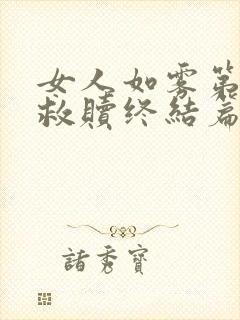 女人如雾第
救赎终结篇
诸秀宝